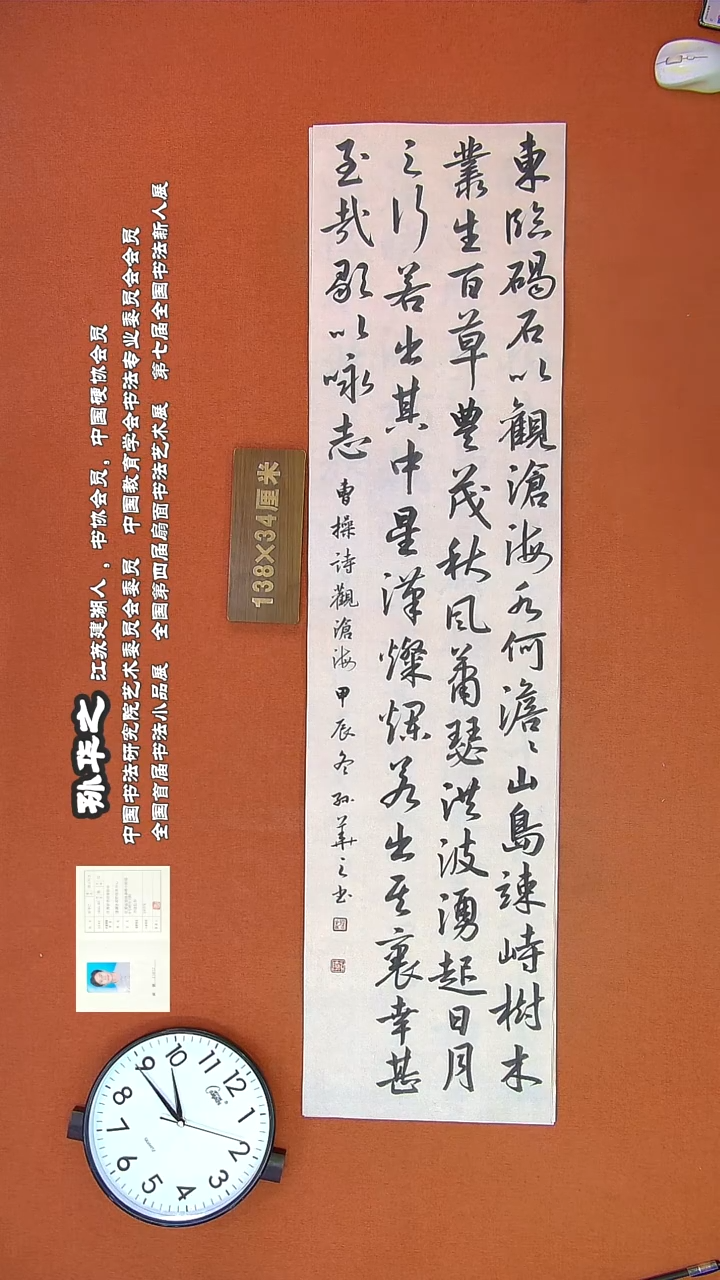 東臨碣石以觀滄海水何澹〻山島竦峙樹木
叢生百草豐茂秋風蕭瑟洪波湧起日月
之行若出其中星漢燦爛若出其裏幸甚
至哉歌以咏志 曹操詩觀滄海甲辰冬孫華之書
138×34厘米
孙华之 江苏建湖人，书协会员，中国硬协会员
中国书法研究院艺术委员会委员 中国教育学会书法专业委员会会员
全国首届书法小品展 全国第四届扇面书法艺术展 第七届全国书法新人展
12
1
2
3
4
5
6
7
8
9
10
11